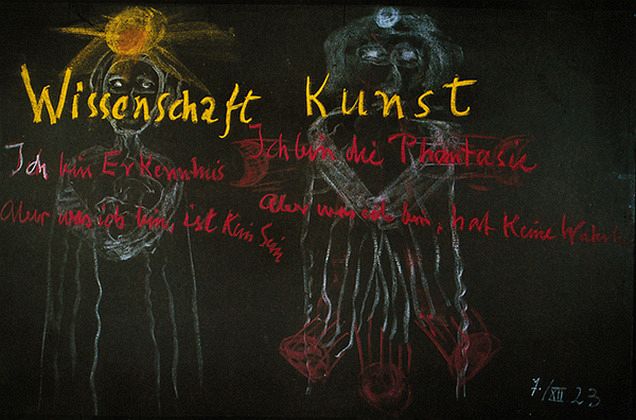 Wissenschaft Kunst
Ich bin Erkenntnis
Ich bin die Phantasie
Aber was ich bin, ist kein Sein
Aber was ich bin, hat keine
7./XII 23